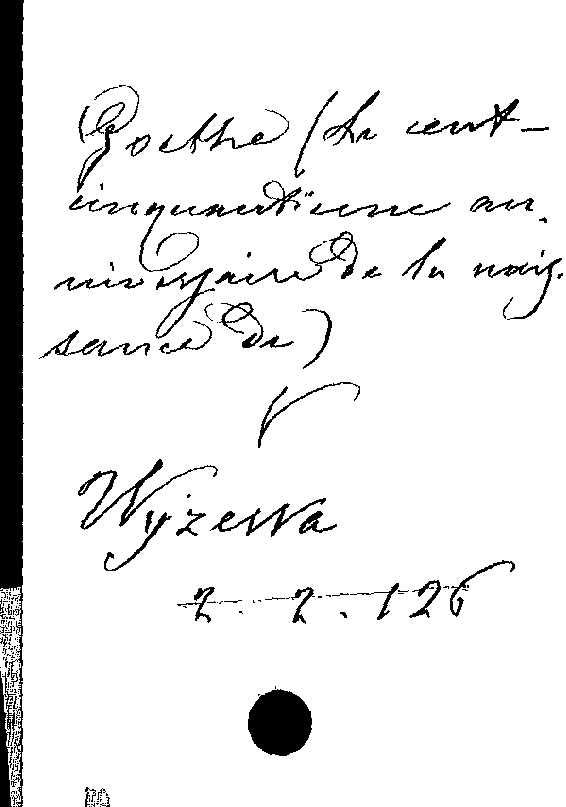 Goethe (Le cent-
cinquantième an-
niversaire de la nais-
sance de)
V
Wyzewa
2. 2. 126